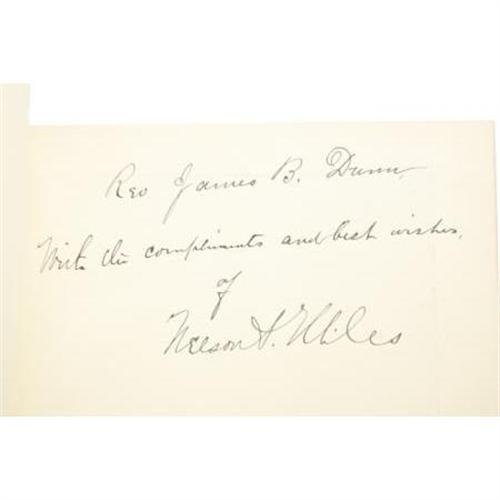 Rev James B. Dunn,
With the compliments and best wishes,
of
Nelson A. Miles